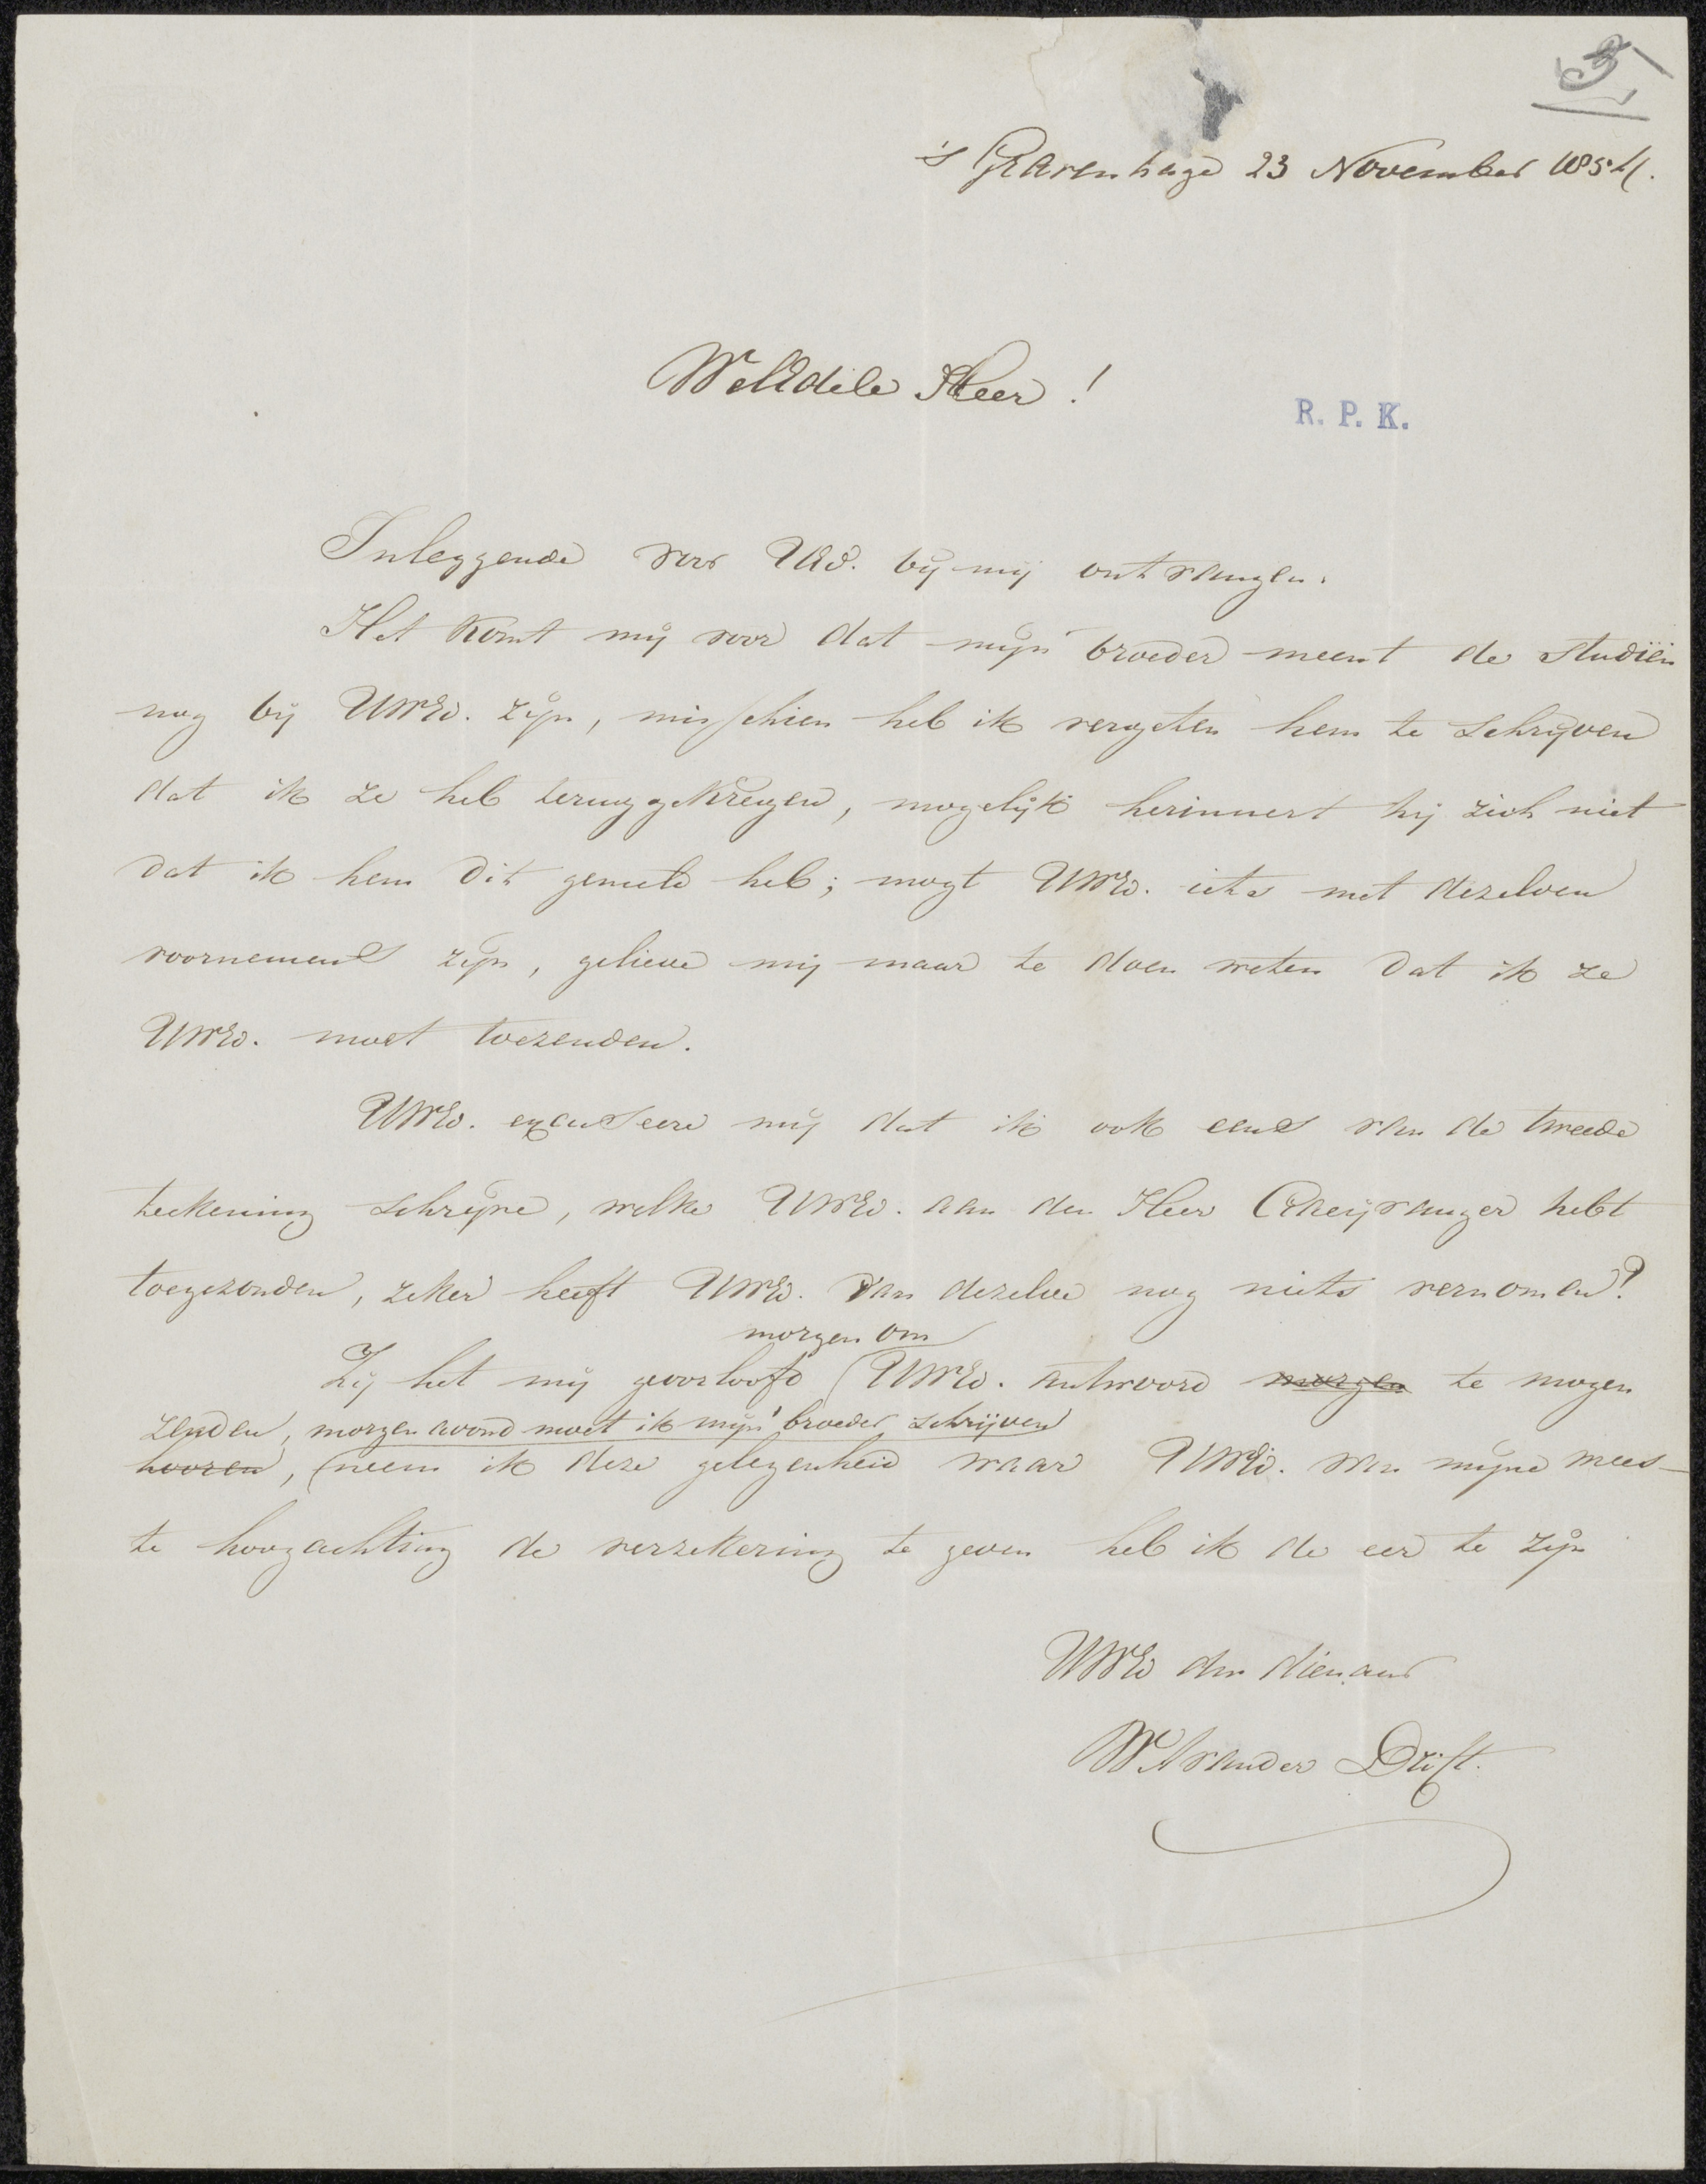 3
's Gravenhage 23 November 1854.
WelEdele Heer!
R. P. K.
Inleggende voor UEd. bij mij ontvangen.
Het komt mij voor dat mijn broeder meent de studiën
nog bij UWEd. zijn, misschien heb ik vergeten hem te schrijven
dat ik ze heb teruggekregen, mogelijk herinnert hij zich niet
dat ik hem dit gemeld heb; mogt UWEd. iets met dezelven
voornemens zijn, gelieve mij maar te doen weten dat ik ze
UWEd. moet toezenden.
UWEd. excuseere mij dat ik ook eens van de tweede
teekening schrijve, welke UWEd. aan den Heer Craeyvanger hebt
toegezonden, zeker heeft UWEd. van dezelve nog niets vernomen?
morgen om
Zij het mij geoorloofd UWEd. antwoord morgen te mogen
zenden, morgen avond moet ik mijn broeder schrijven
hooren, neem ik deze gelegenheid waar UWEd. van mijne mees-
te hoogachting de verzekering te geven heb ik de eer te zijn
UWEd dn dienaar
W A van der Drift.